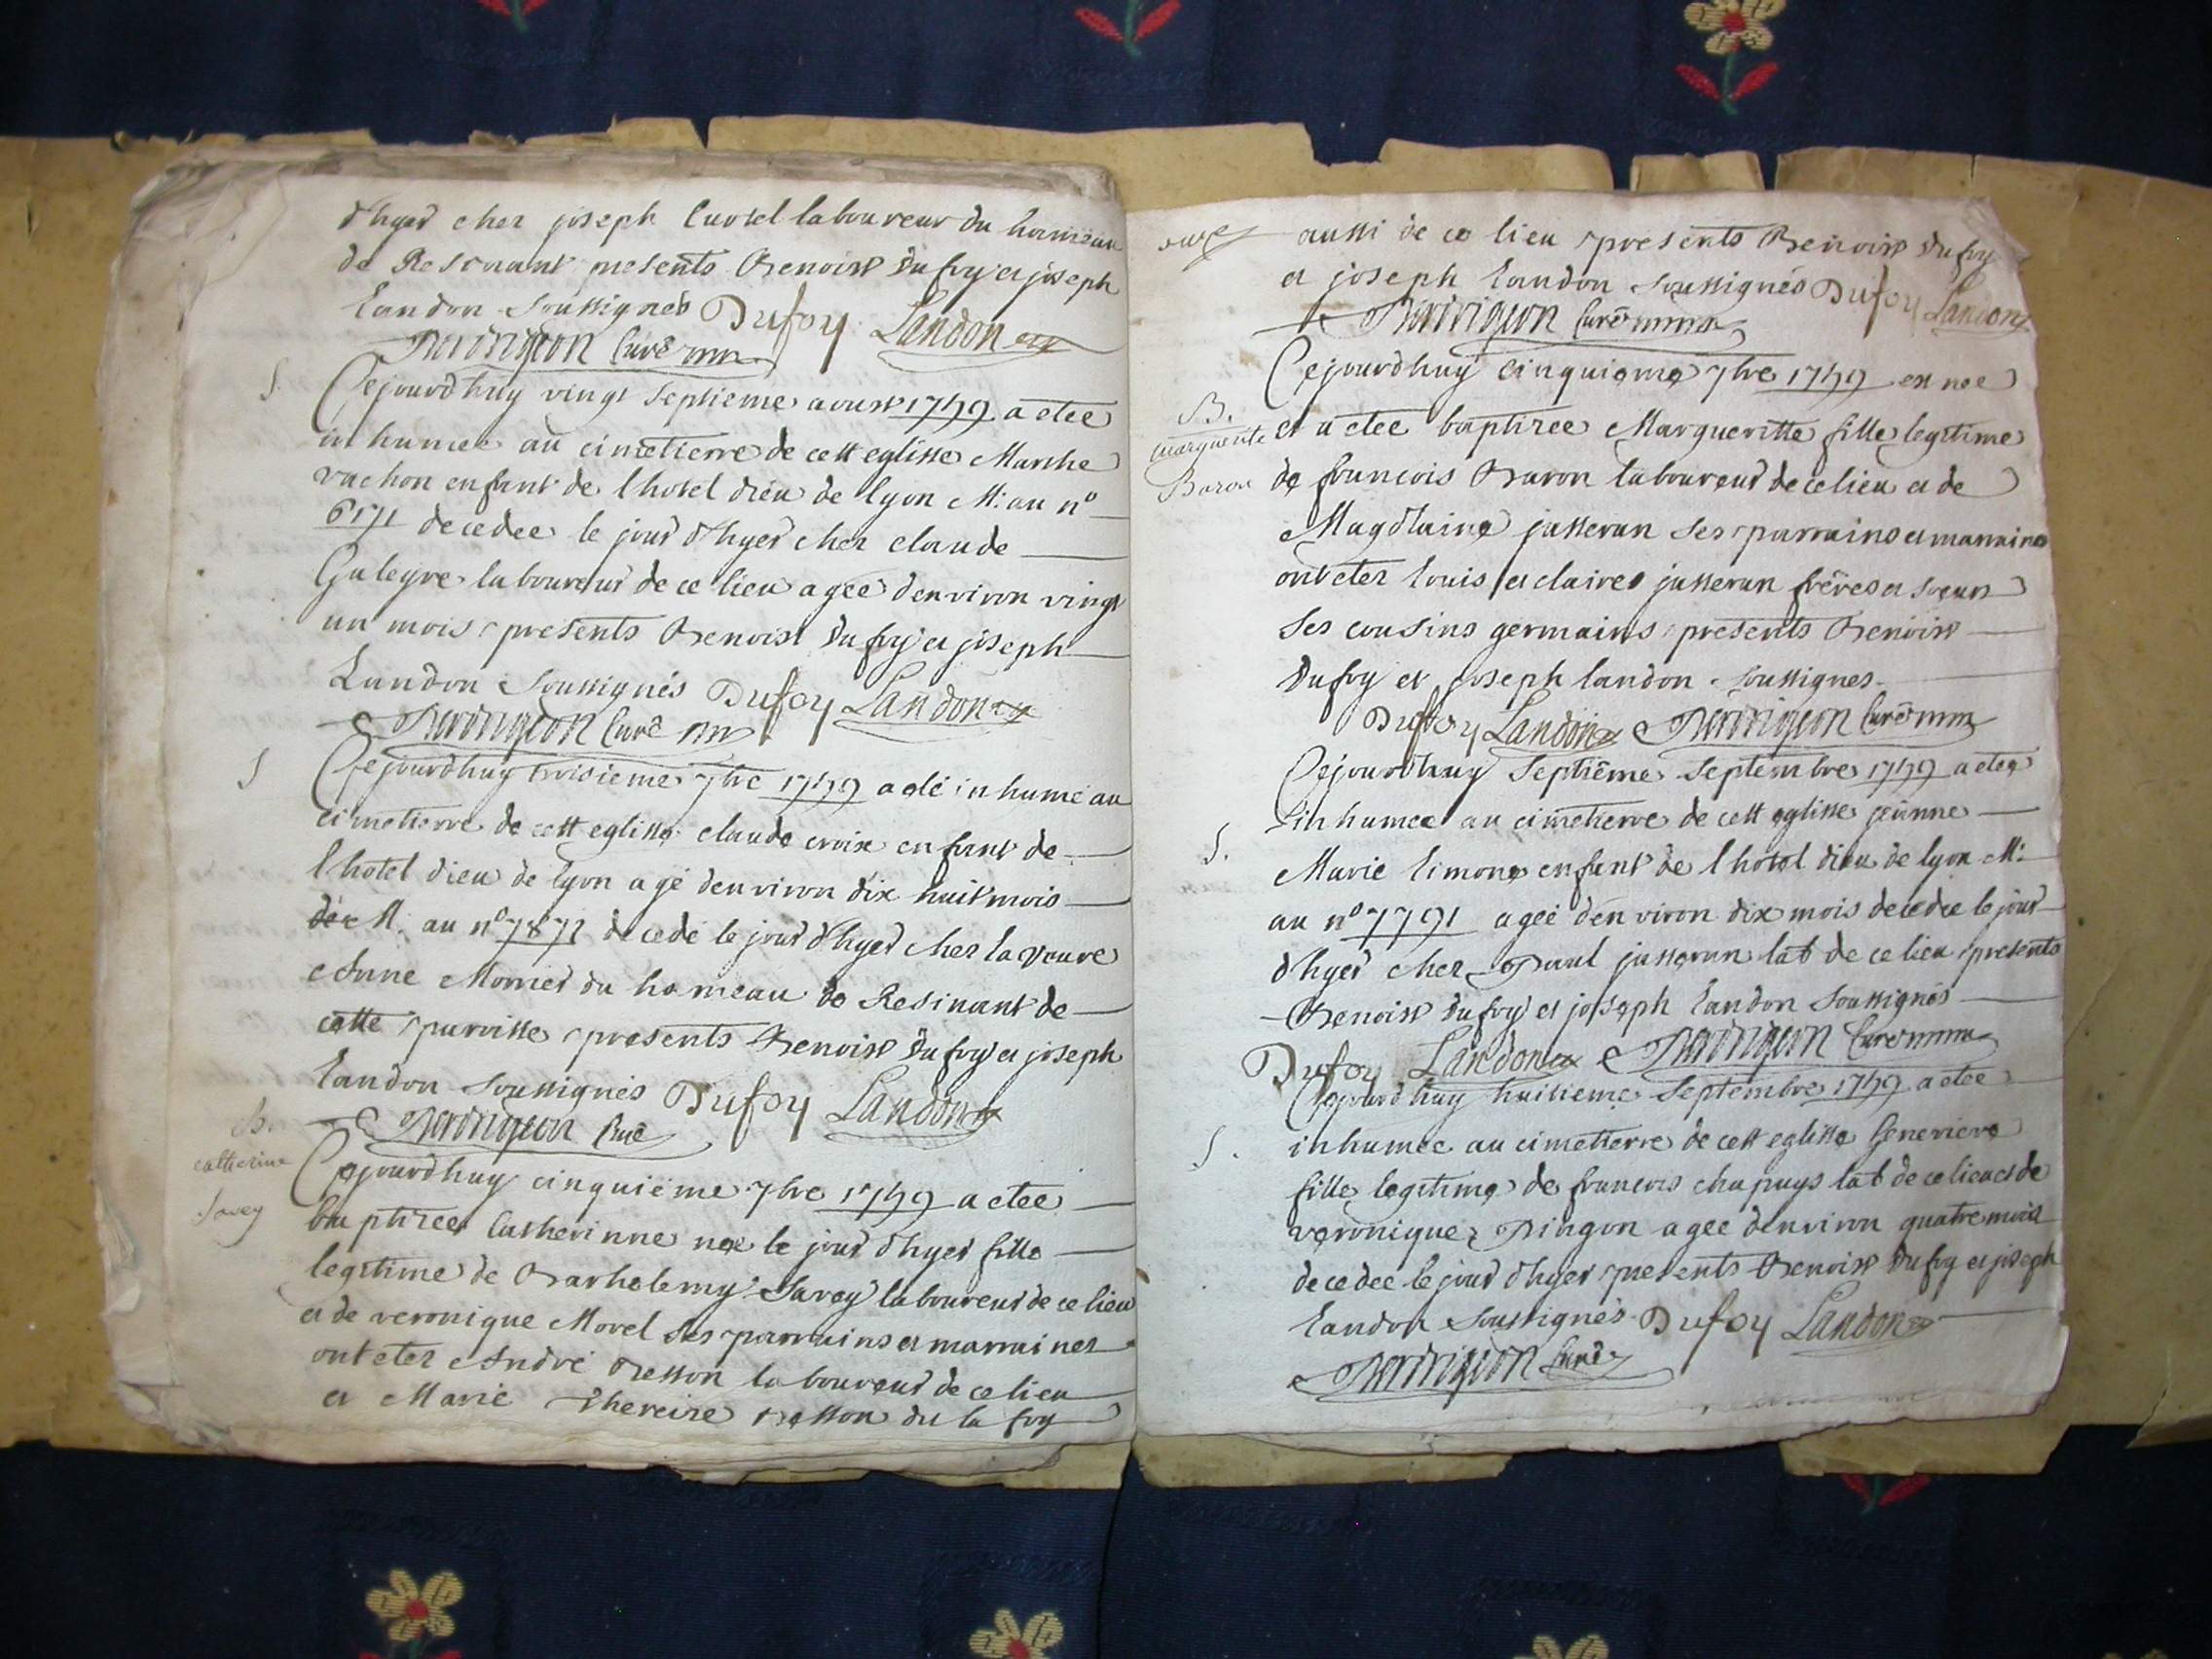 d'hyer cher joseph Curtel laboureur du hameau
de Resinant presents Benoist dufoy et joseph
Landon soussignés Dufoy Landon
Perdrigeon Curé
S.
Cejourdhuy vingt septieme aoust 1749 a etee
inhumee au cimetierre de cett eglisse Marthe
vachon enfant de lhotel dieu de lyon M: au nº
6171 decedee le jour d'hyer cher claude
Galeyre laboureur de ce lieu agée denviron vingt
un mois presents Benoist dufoy et joseph
Landon soussignés Dufoy Landon
Perdrigeon Curé
S
Cejourdhuy troisieme 7bre 1749 a eté inhumé au
cimetierre de cett eglisse claude croix enfant de
lhotel dieu de lyon agé denviron dix huit mois
M. au nº 7872 decedé le jour d'hyer cher la veuve
Anne Morier du hameau de Resinant de
cette paroisse presents Benoist dufoy et joseph
Landon soussignés Dufoy Landon
Perdrigeon Curé
B.
catherine
Savey
Cejourdhuy cinquiême 7bre 1749 a etee
baptizee Catherinne nee le jour d'hyer fille
legitime de Barthelemy Savey laboureur de ce lieu
et de veronique Morel ses parrains et marraines
ont etez André Besson laboureur de ce lieu
et Marie Thereize besson du la foy
aussi de ce lieu presents Benoist dufoy
et joseph Landon soussignés Dufoy Landon
Perdrigeon Curé
Cejourdhuy cinquieme 7bre 1749 est nee
B.
marguerite
Baron
et a etee baptizee Margueritte fille legitime
de francois Baron laboureur de ce lieu et de
Magdlaine jasseran ses parrains et marraines
ont etez louis et claire jasseran frères et soeurs
ses cousins germains presents Benoist
dufoy et joseph landon soussignes
Dufoy Landon Perdrigeon Curé
Cejourdhuy Septiême Septembre 1749 a etee
inhumee au cimetierre de cett eglisse jeanne
S.
Marie limone enfant de lhotel dieu de lyon M:
au nº 7791 agée denviron dix mois decedee le jour
d'hyer cher Paul jasseran lab de ce lieu presents
Benoist dufoy et joseph Landon soussignés
Dufoy Landon Perdrigeon Curé
Cejourdhuy huitieme Septembre 1749 a etee
S.
inhumee au cimetierre de cett eglisse Genevieve
fille legitime de francois chapuys lab de ce lieu et de
veronique Pingon agee denviron quatre mois
decedee le jour d'hyer presents Benoist dufoy et joseph
Landon soussignés Dufoy Landon
Perdrigeon Curé